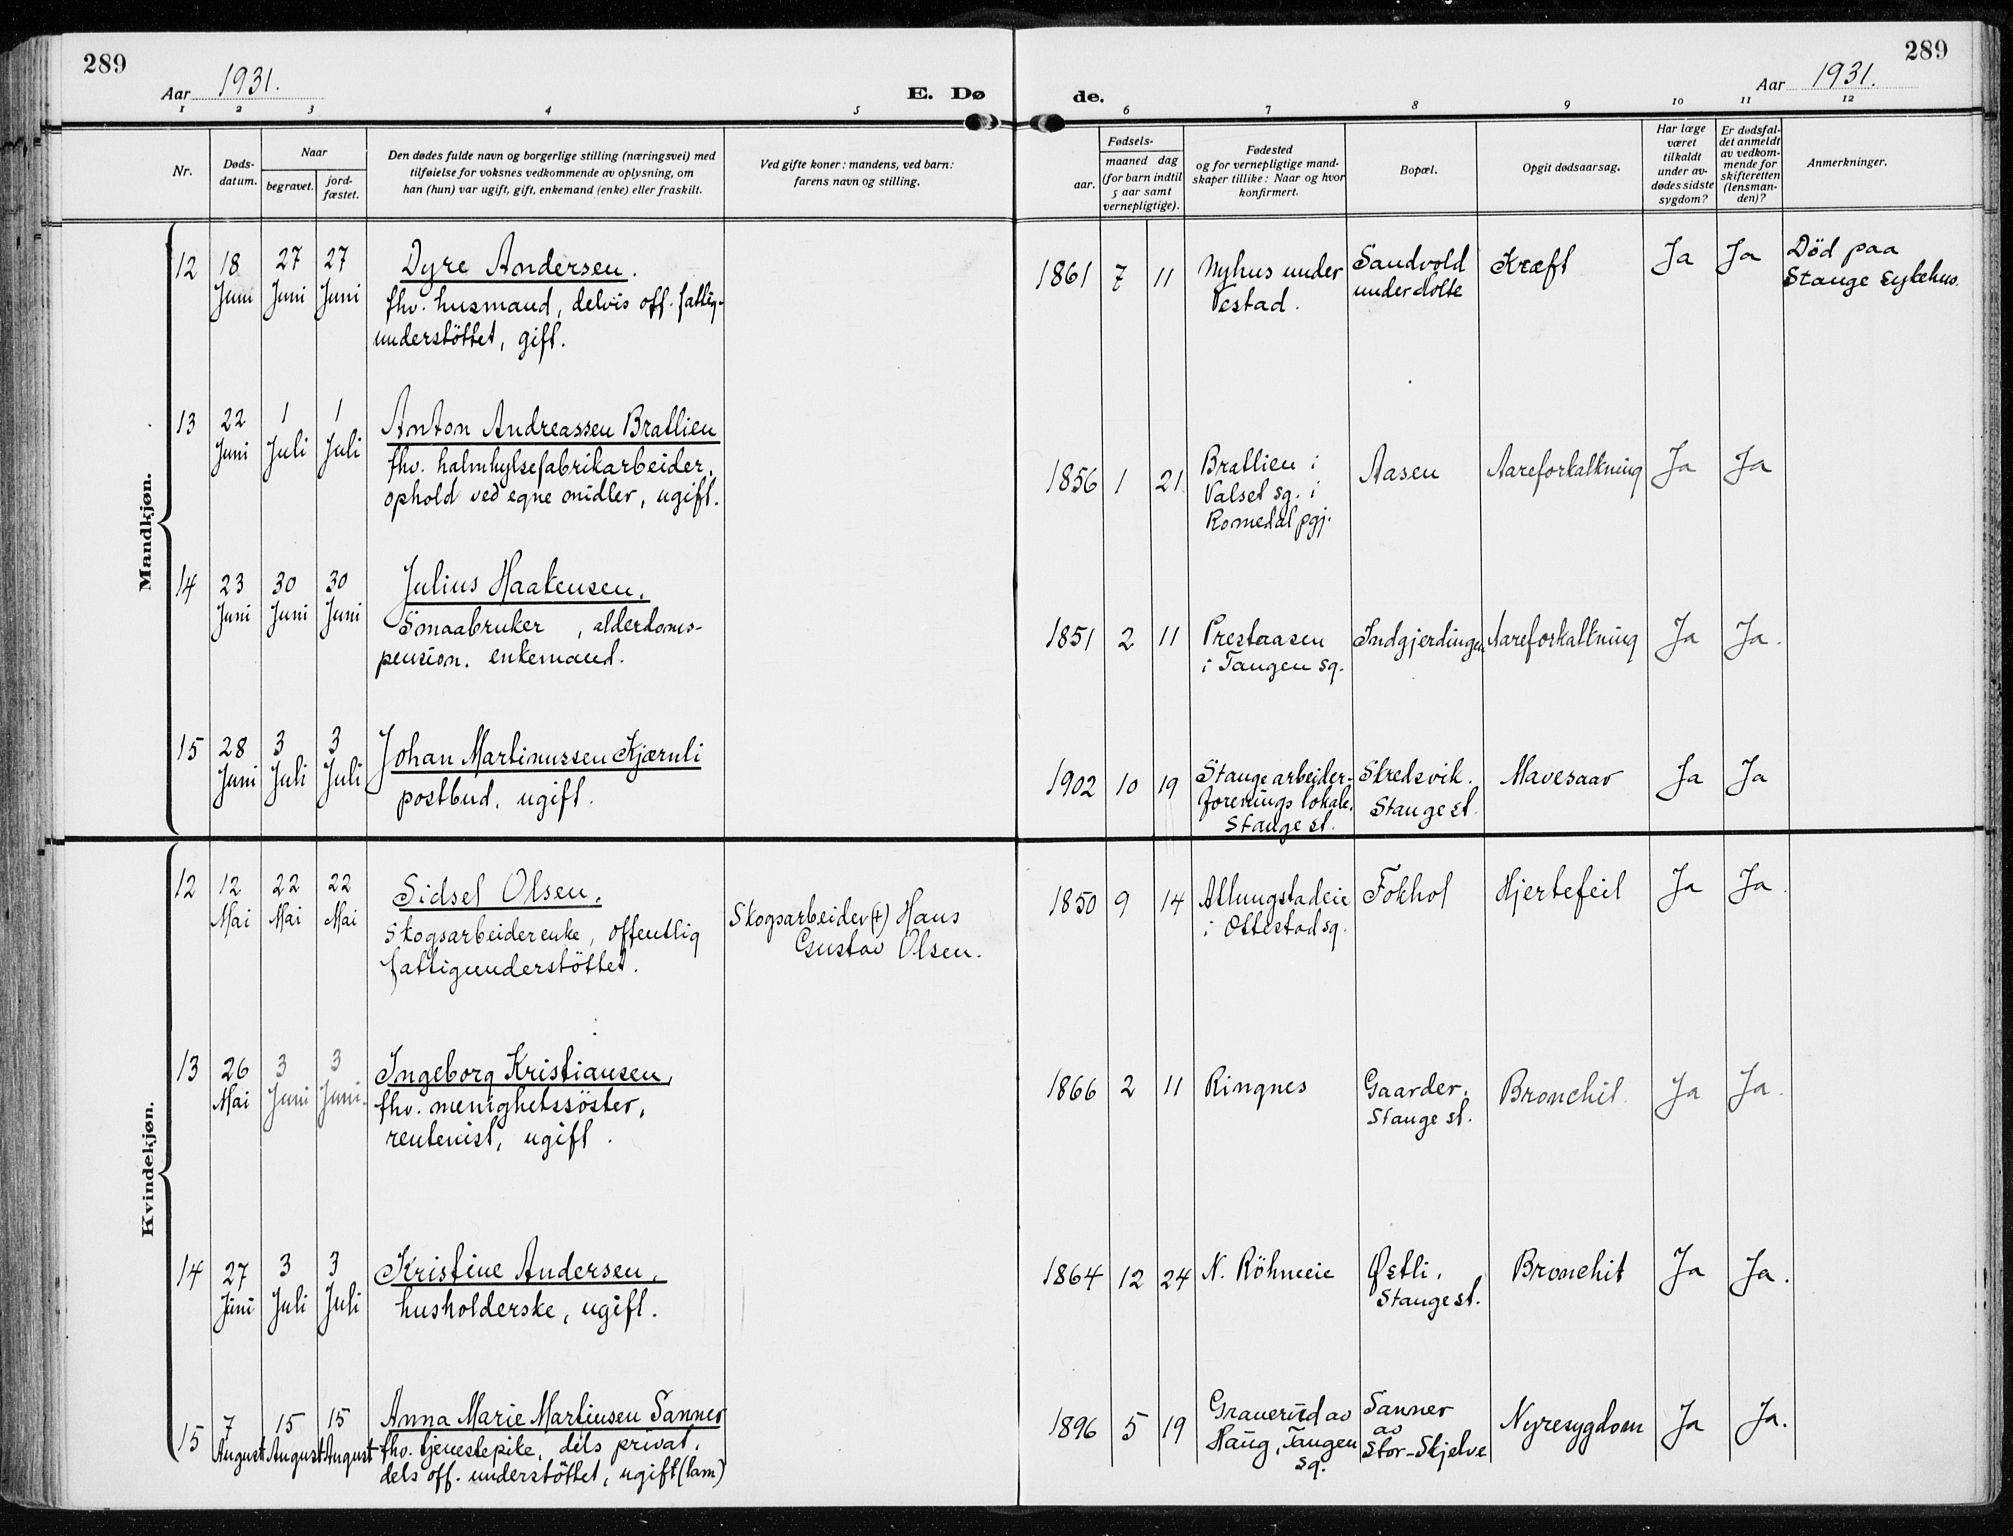 289
Aar 1931.
E. Dø
de.
Aar 1931.
289
1 2 3 4 5 6 7 8 9 10 11 12
Nr.
Døds-
datum.
Naar
begravet.
jord-
fæstet.
Den dødes fulde navn og borgerlige stilling (næringsvei) med
tilføielse for voksnes vedkommende av oplysning, om
han (hun) var ugift, gift, enkemand (enke) eller fraskilt.
Ved gifte koner: mandens, ved barn:
farens navn og stilling.
Fødsels-
aar.
maaned dag
(for barn indtil
5 aar samt
vernepligtige).
Fødested
og for vernepligtige mand-
skaper tillike: Naar og hvor
konfirmert.
Bopæl.
Opgit dødsaarsag.
Har læge
været
tilkaldt
under av-
dødes sidste
sygdom?
Er dødsfal-
det anmeldt
av vedkom-
mende for
skifteretten
(lensman-
den)?
Anmerkninger.
Mandkjøn.
12
18
Juni
27
Juni
27
Juni
Dyre Andersen.
fhv. husmand, delvis off. fattig-
understöttet, gift.
1861 7 11
Nyhus under
Vestad.
Sandvold
under
Kræft
Ja
Ja
Död paa
Stange sykehus.
13
22
Juni
1
Juli
1
Juli
Anton Andreassen Bratlien
fhv. halmhylsefabrikarbeider,
ophold ved egne midler, ugift.
1856 1 21
Bratlien i
Valset sg. i
Romedal pgj.
Aasen
Aareforkalkning
Ja
Ja
14
23
Juni
30
Juni
30
Juni
Julius Haakensen,
Smaabruker , alderdoms-
pension. enkemand.
1851 2 11
Prestaasen
i Tangen sg.
Indgjerdingen
Aareforkalkning
Ja
Ja.
15
28
Juni
3
Juli
3
Juli
Johan Martinussen Kjærnli
postbud, ugift.
1902 10 19
Stange arbeider-
forenings lokale,
Stange st.
Skredsvik.
Stange st.
Mavesaar
Ja
Ja
Kvindekjøn.
12
12
Mai
22
Mai
22
Mai
Sidsel Olsen.
Skogsarbeiderenke, offentlig
fattigunderstöttet.
Skogsarbeider (+) Hans
Gustav Olsen.
1850 9 14
Atlungstadeie
i Ottestad sg.
Fokhol
Hjertefeil
Ja
Ja.
13
26
Mai
3
Juni
3
Juni.
Ingeborg Kristiansen,
fhv. menighetssöster,
rentenist, ugift.
1866 2 11
Ringnes
Gaarder,
Stange st.
Bronchit.
Ja
Ja.
14
27
Juni
3
Juli
3
Juli
Kristine Andersen,
husholderske, ugift.
1864 12 24
N. Röhneeie
Østli,
Stange st.
Bronchit
Ja
Ja.
15
7
August
15
August
15
August
Anna Marie Martinsen Sanner
fhv. tjenestepike, dels privat,
dels off. understöttet, ugift (lam)
1896 5 19
Grauerud av
Haug, Tangen
sg.
Sanner
av
Stor-Skjelve
Nyresygdom
Ja
Ja.